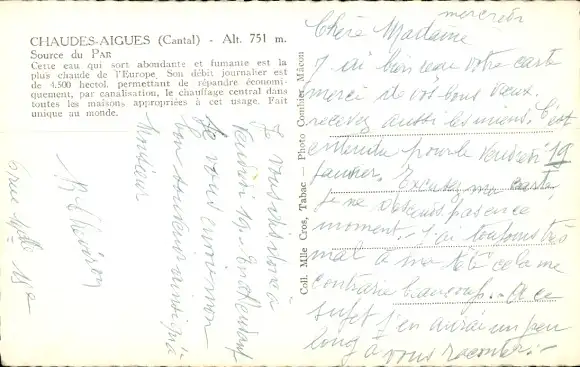 CHAUDES-AIGUES (Cantal) - Alt. 751 m.
Source du Par
Cette eau qui sort abondante et fumante est la
plus chaude de l'Europe. Son débit journalier est
de 4.500 hectol. permettant de répandre économi-
quement, par canalisation, le chauffage central dans
toutes les maisons appropriées à cet usage. Fait
unique au monde.
Coll. Mlle Cros, Tabac — Photo Combier Mâcon
mercredi
Chère Madame
J'ai bien reçu votre carte
merci de vos bons vœux.
recevez aussi les miens. C'est
entendu pour le Vendredi 19
Janvier. Excusez ma carte,
je ne descends pas en ce
moment. J'ai toujours très
mal à ma tête cela me
contrarie beaucoup. A ce
sujet j'en aurai un peu
long à vous raconter.
Je vous dis donc à
Vendredi
Je vous envoie mon
bon souvenir ainsi qu'à
Monsieur